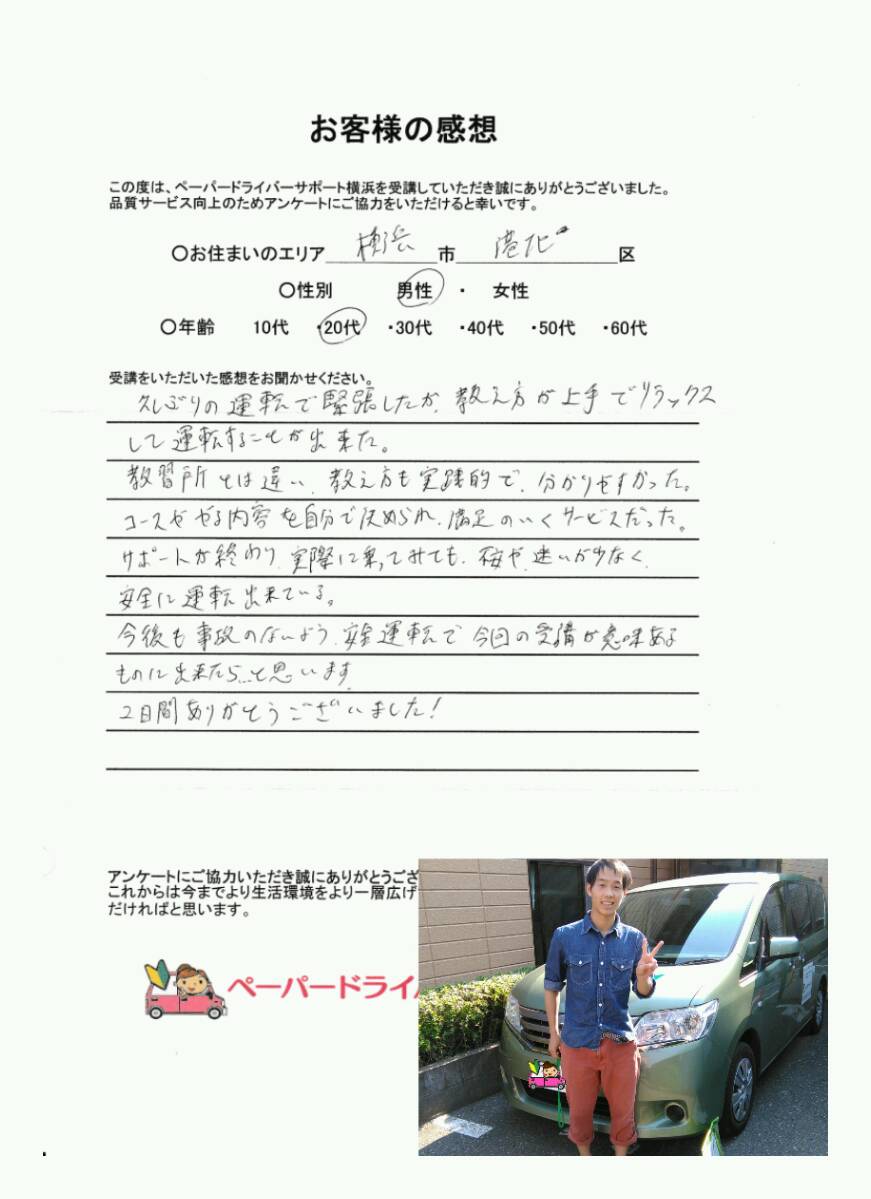 お客様の感想
この度は、ペーパードライバーサポート横浜を受講していただき誠にありがとうございました。
品質サービス向上のためアンケートにご協力をいただけると幸いです。
〇お住まいのエリア 横浜 市 港北 区
〇性別 男性 ・ 女性
〇年齢 10代 ・20代 ・30代 ・40代 ・50代 ・60代
受講をいただいた感想をお聞かせください。
久しぶりの運転で緊張したが、教え方が上手でリラックス
して運転することが出来た。
教習所とは違い、教え方も実践的で、分かりやすかった。
コースややる内容を自分で決められ、満足のいくサービスだった。
サポートが終わり、実際に乗ってみても、不安や、迷いが少なく、
安全に運転出来ている。
今後も事故のないよう、安全運転で今回の受講が意味ある
ものに出来たら…と思います
2日間ありがとうございました!
アンケートにご協力いただき誠にありがとうござ
これからは今までより生活環境をより一層広げ
だければと思います。
ペーパードライ